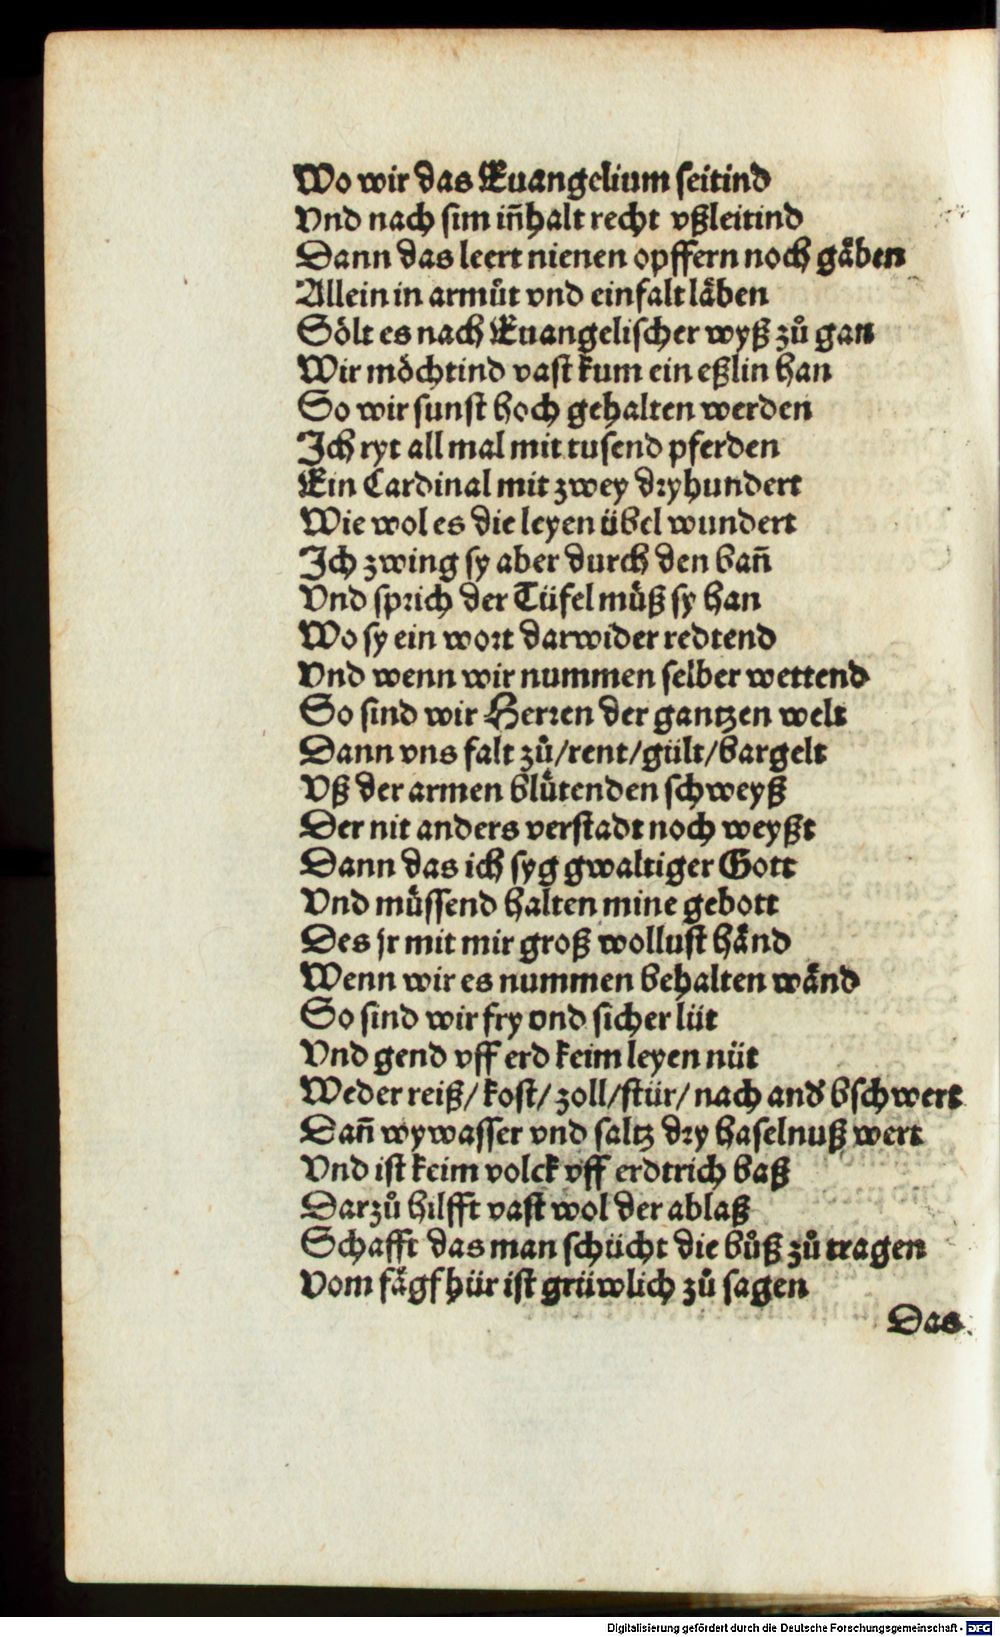 Wo wir das Euangelium seitind
Vnd nach sim iñhalt recht vßleitind
Dann das leert nienen opffern noch gåben
Allein in armůt vnd einfalt låben
Sölt es nach Euangelischer wyß zů gan
Wir möchtind vast kum ein eßlin han
So wir sunst hoch gehalten werden
Ich ryt all mal mit tusend pferden
Ein Cardinal mit zwey dryhundert
Wie wol es die leyen übel wundert
Ich zwing sy aber durch den bañ
Vnd sprich der Tüfel müß sy han
Wo sy ein wort darwider redtend
Vnd wenn wir nummen selber wettend
So sind wir Herren der gantzen welt
Dann vns falt zů/rent/gült/bargelt
Vß der armen blütenden schweyß
Der nit anders verstadt noch weyßt
Dann das ich syg gwaltiger Gott
Vnd müssend halten mine gebott
Des jr mit mir groß wollust händ
Wenn wir es nummen behalten wänd
So sind wir fry vnd sicher lüt
Vnd gend vff erd keim leyen nüt
Weder reiß/ kost/ zoll/stür/ nach and̕ bschwert
Dañ wywasser vnd saltz dry haselnuß wert
Vnd ist keim volck vff erdtrich baß
Darzů hilfft vast wol der ablaß
Schafft das man schücht die bůß zů tragen
Vom fägfhür ist grüwlich zů sagen
Das
Digitalisierung gefördert durch die Deutsche Forschungsgemeinschaft - DFG